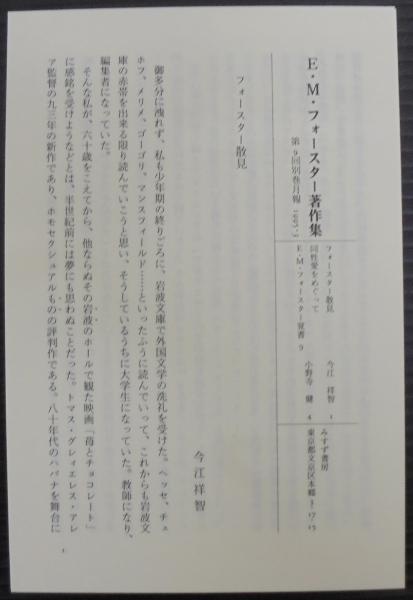 E・M・フォースター著作集
第9回別巻月報 1995.3
フォースター散見 今江祥智 1
同性愛をめぐって
E・M・フォースター覚書 9 小野寺 健 4
みすず書房
東京都文京区本郷3-17-15
フォースター散見
今江祥智
御多分に洩れず、私も少年期の終りごろに、岩波文庫で外国文学の洗礼を受けた。ヘッセ、チェ
ホフ、メリメ、ゴーゴリ、マンスフィールド……といったふうに読んでいって、これからも岩波文
庫の赤帯を出来る限り読んでいこうと思い、そうしているうちに大学生になっていた。教師になり、
編集者になっていた。
そんな私が、六十歳をこえてから、他ならぬその岩波のホールで観た映画「苺とチョコレート」
に感銘を受けようなどとは、半世紀前には夢にも思わぬことだった。トマス・グティエレス・アレ
ア監督の九三年の新作であり、ホモセクシュアルものの評判作である。八十年代のハバナを舞台に
1